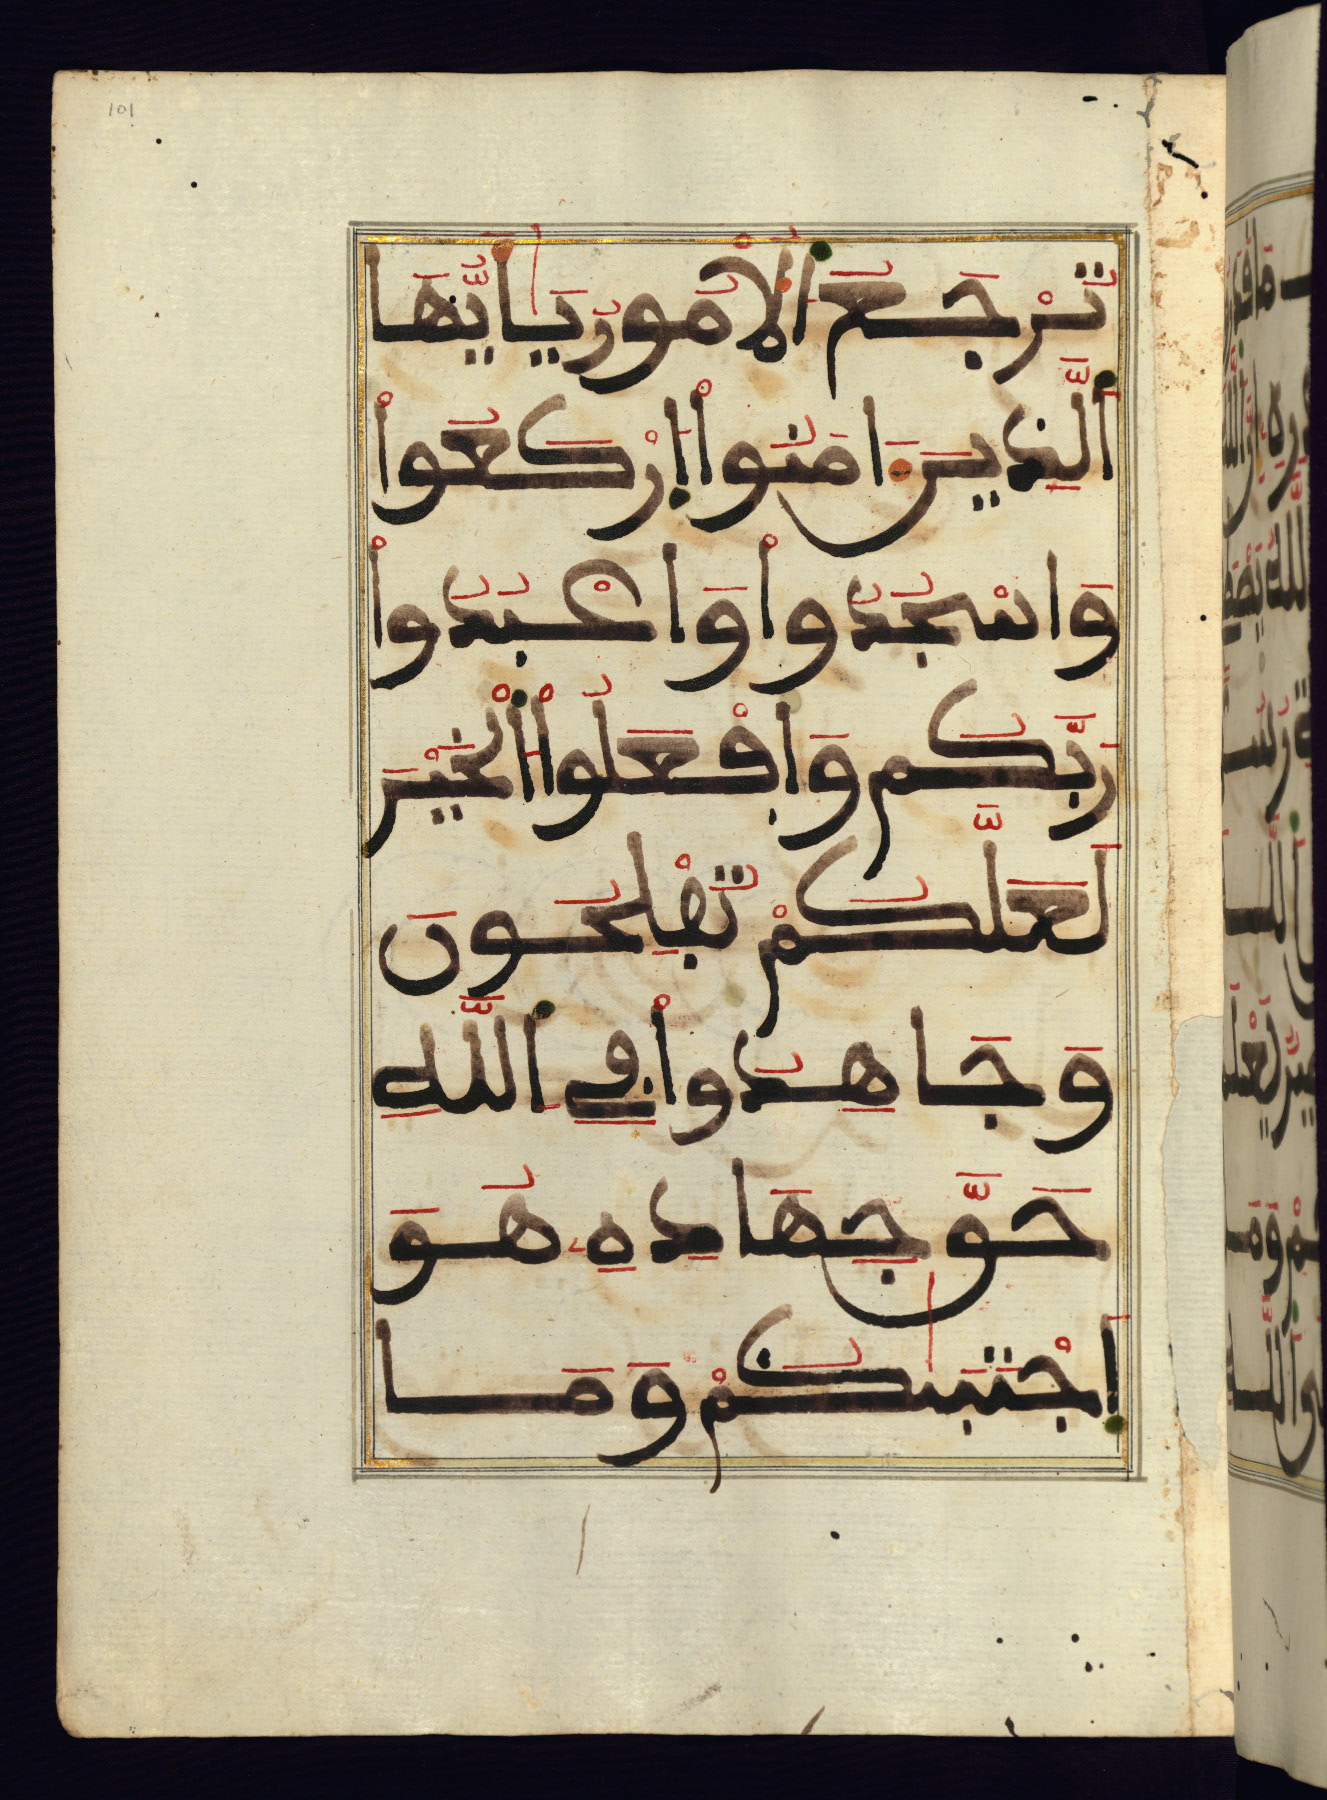 101
تُرْجَعُ الْأُمُورُ يَا أَيُّهَا
الَّذِينَ ءَامَنُوا ارْكَعُوا
وَاسْجُدُوا وَاعْبُدُوا
رَبَّكُمْ وَافْعَلُوا الْخَيْرَ
لَعَلَّكُمْ تُفْلِحُونَ
وَجَاهِدُوا فِي اللَّهِ
حَقَّ جِهَادِهِ هُوَ
اجْتَبَىٰكُمْ وَمَا